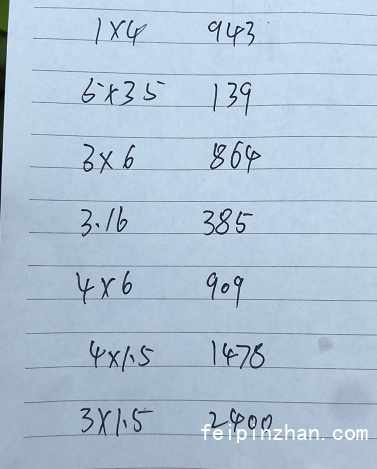 1×4 943
5×35 139
3×6 864
3.16 385
4×6 909
4×1.5 1478
3×1.5 2400
feipinzhan.com